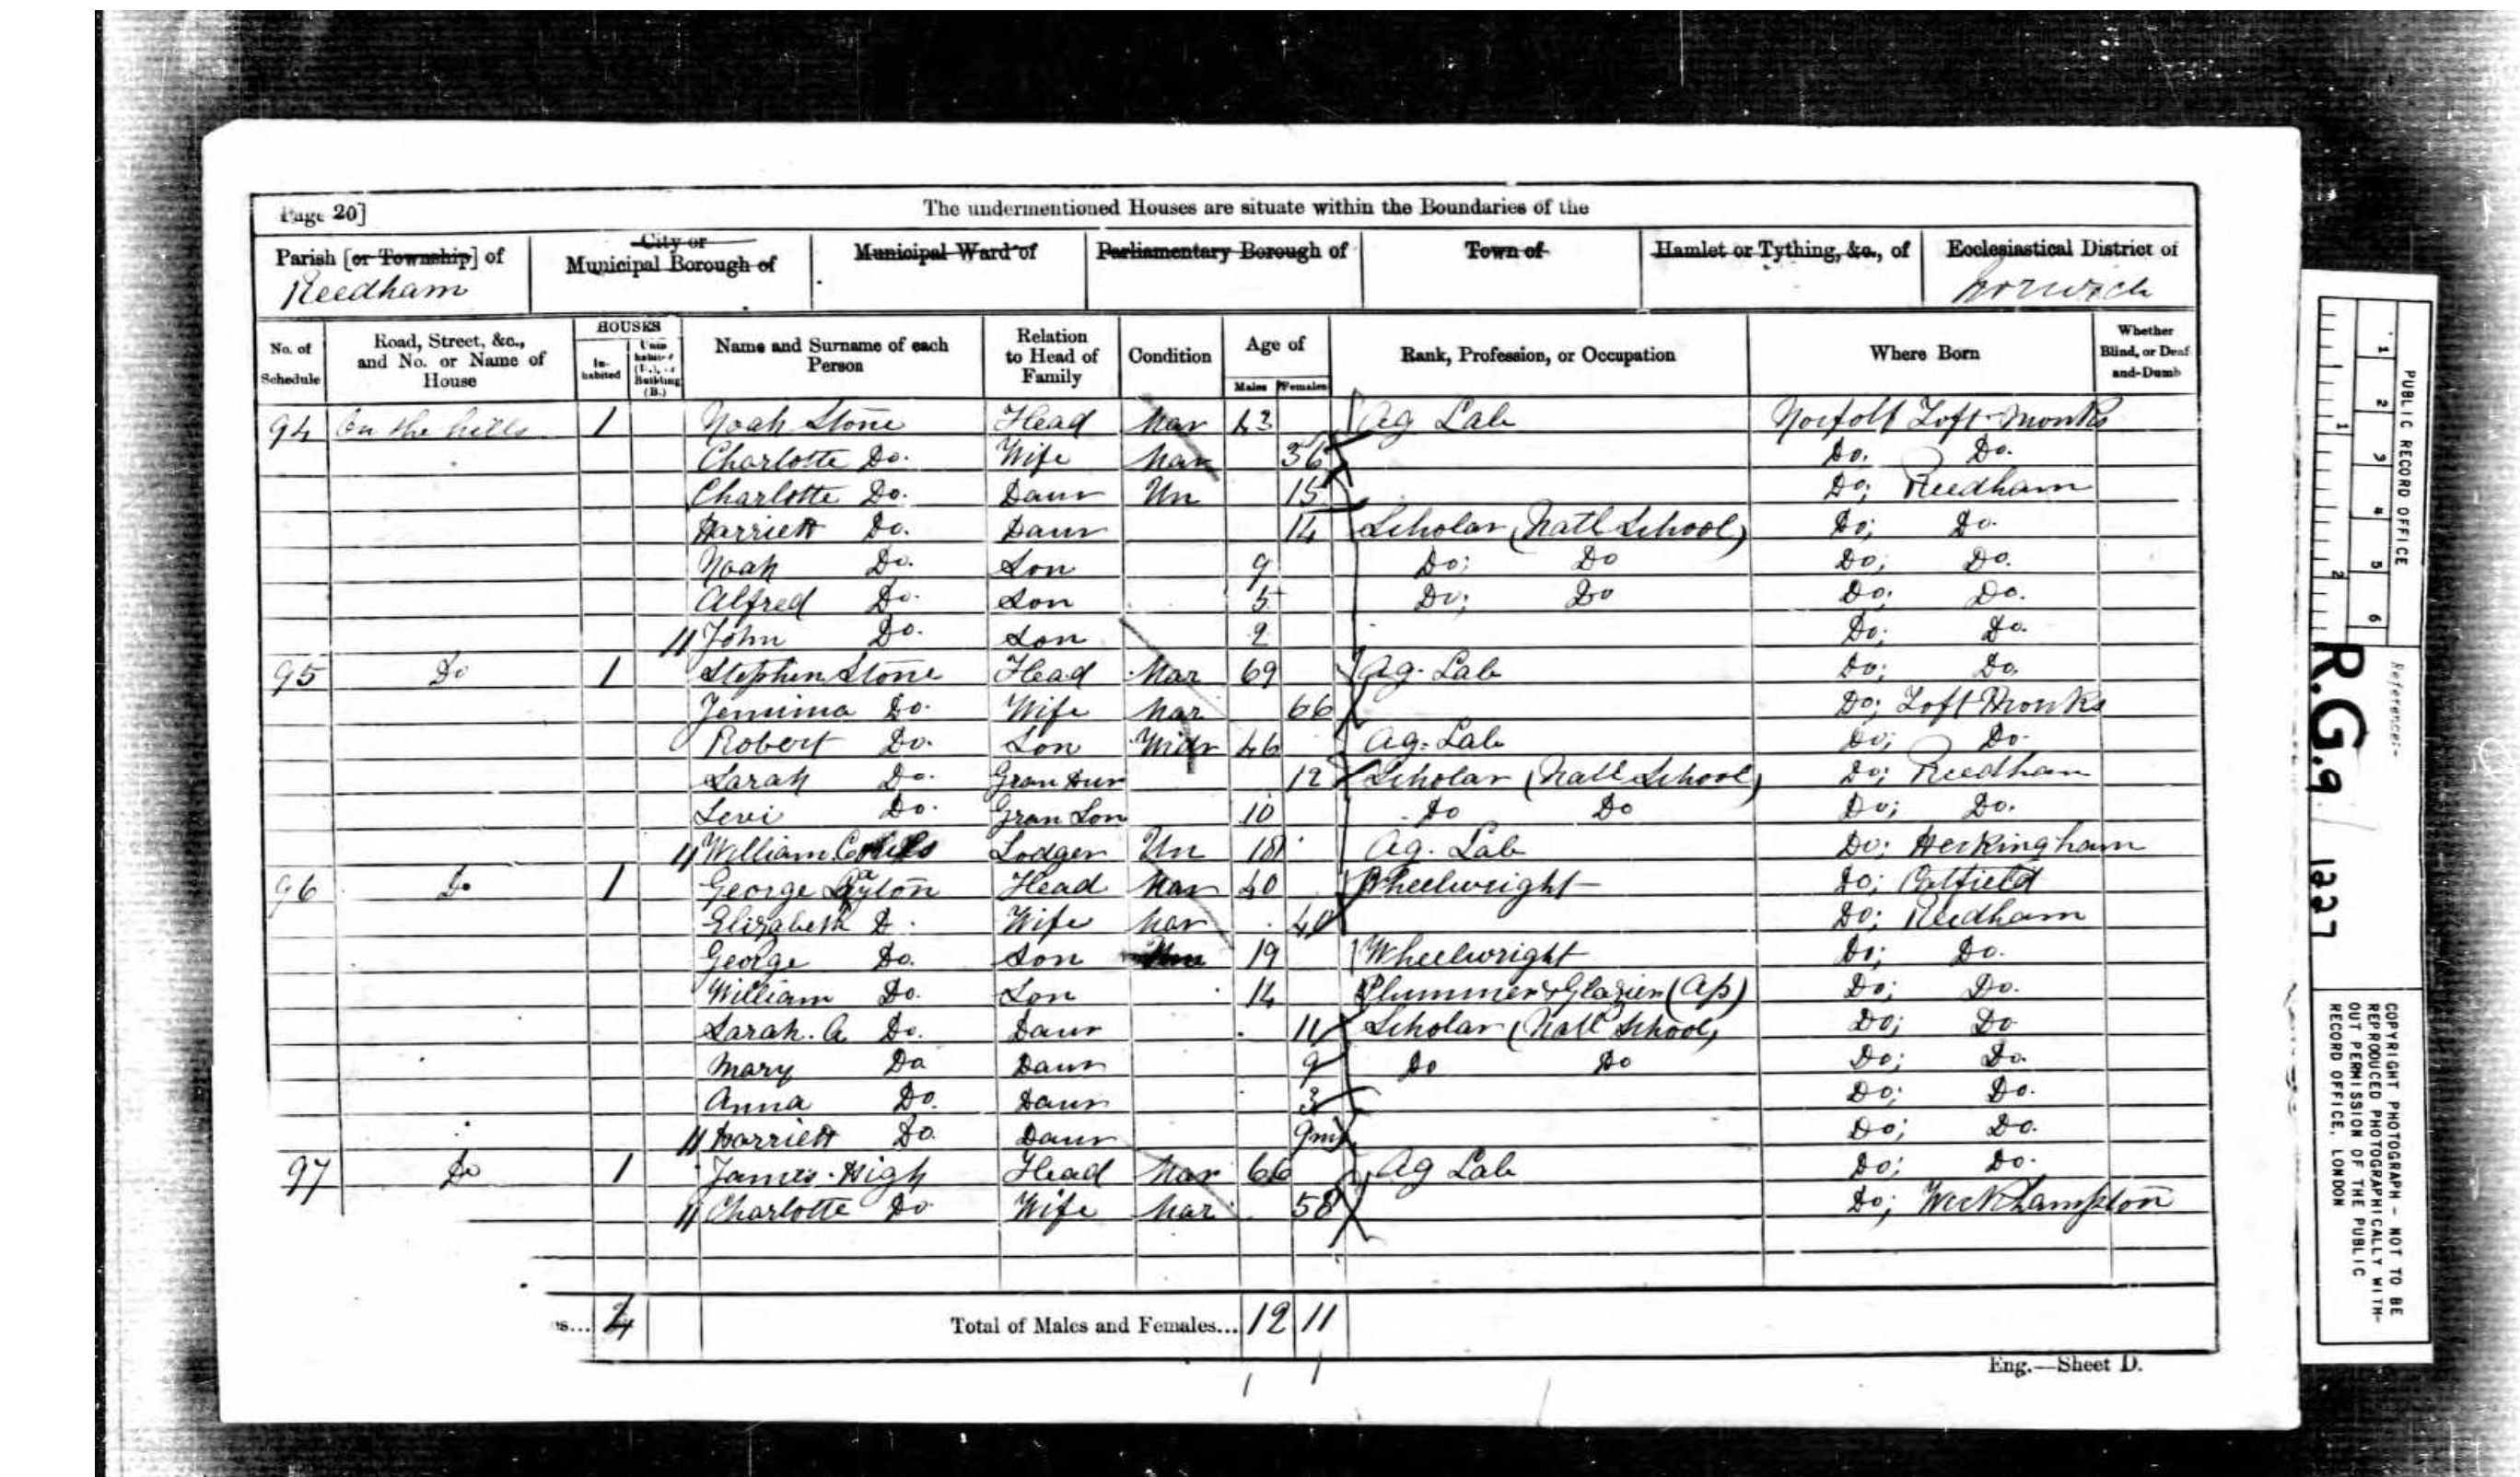 Page 20]
The undermentioned Houses are situate within the Boundaries of the
Parish [or Township] of Reedham
City or Municipal Borough of
Municipal Ward of
Parliamentary Borough of
Town of
Hamlet or Tything, &c., of
Ecclesiastical District of Norwich
No. of Schedule
Road, Street, &c., and No. or Name of House
HOUSES
In-habited
Unin-habited (U.), or Building (B.)
Name and Surname of each Person
Relation to Head of Family
Condition
Age of
Males
Females
Rank, Profession, or Occupation
Where Born
Whether Blind, or Deaf-and-Dumb
94 On the hills 1 Noah Stone Head Mar 43 Ag Lab Norfolk Toft Monks
Charlotte Do. Wife Mar 36 Do. Do.
Charlotte Do. Daur Un 15 Do; Reedham
Harriett Do. Daur 14 Scholar (Natl School) Do; Do.
Noah Do. Son 9 Do; Do Do; Do.
Alfred Do. Son 5 Do; Do Do; Do.
John Do. Son 2 Do; Do.
95 Do 1 Stephen Stone Head Mar 69 Ag. Lab Do; Do.
Jemima Do. Wife Mar 66 Do; Toft Monks
Robert Do. Son Widr 46 Ag. Lab Do; Do.
Sarah Do. Gran Dur 12 Scholar (Natl School) Do; Reedham
Levi Do. Gran Son 10 Do Do Do; Do.
William Lodger Un 18 Ag. Lab Do; Heckingham
96 Do 1 George Layton Head Mar 40 Wheelwright Do; Catfield
Elizabeth D. Wife Mar 40 Do; Reedham
George Do. Son 19 Wheelwright Do; Do.
William Do. Son 14 Plummer & Glazier (Ap) Do; Do.
Sarah. A Do. Daur 11 Scholar (Natl School) Do; Do
Mary Do Daur 9 Do Do Do; Do.
Anna Do. Daur 3 Do; Do.
Harriett Do. Daur 9m Do; Do.
97 Do 1 James High Head Mar 66 Ag Lab Do; Do.
Charlotte Do Wife Mar 58 Do; Wickhampton
s... 4 Total of Males and Females... 12 11
Eng.—Sheet D.
1 2 3 4 5 6
1 2
PUBLIC RECORD OFFICE
Reference:-
R.G. 9 / 1227
COPYRIGHT PHOTOGRAPH - NOT TO BE
REPRODUCED PHOTOGRAPHICALLY WITH-
OUT PERMISSION OF THE PUBLIC
RECORD OFFICE, LONDON